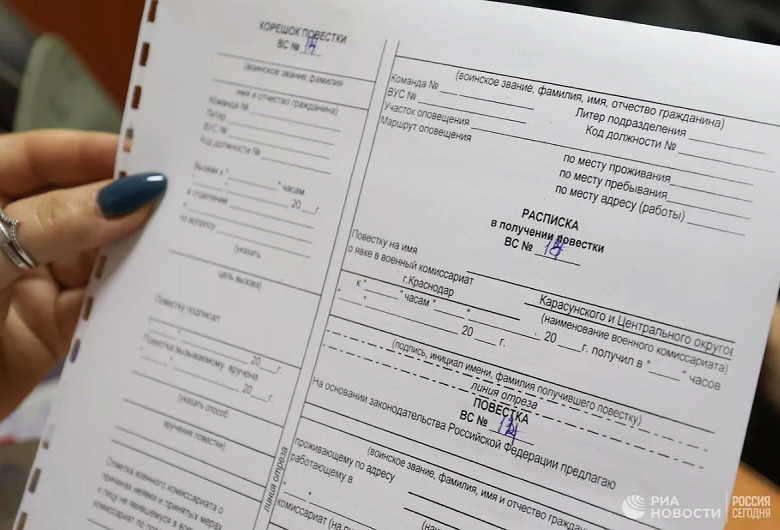 КОРЕШОК ПОВЕСТКИ
ВС №
(воинское звание, фамилия
имя и отчество гражданина)
Команда №
Литер
ВУС №
Код должности №
Вызван к " " часам
" " 20 г.
в отделение
к
по вопросу
(указать
цель вызова)
Повестку подписал
" " 20 г.
Повестка вызываемому вручена
" " 20 г.
(указать способ
вручения повестки)
Отметка военного комиссариата о
причинах неявки и принятых мерах
к лицу не явившемуся в военный
комиссариат по
линия отреза
(воинское звание, фамилия, имя, отчество гражданина)
Команда №
Литер подразделения
ВУС №
Код должности №
Участок оповещения
Маршрут оповещения
по месту проживания
по месту пребывания
по месту адресу (работы)
РАСПИСКА
в получении повестки
ВС № 13
Повестку на имя
о явке в военный комиссариат
Карасунского и Центрального округов
г.Краснодар
(наименование военного комиссариата)
к " " часам " " 20 г.
" " 20 г. получил в " " часов
(подпись, инициал имени, фамилия получившего повестку)
линия отреза
ПОВЕСТКА
ВС №
На основании законодательства Российской Федерации предлагаю
(воинское звание, фамилия, имя и отчество
проживающему по адресу
работающему в
комиссариат
РИА НОВОСТИ
РОССИЯ СЕГОДНЯ